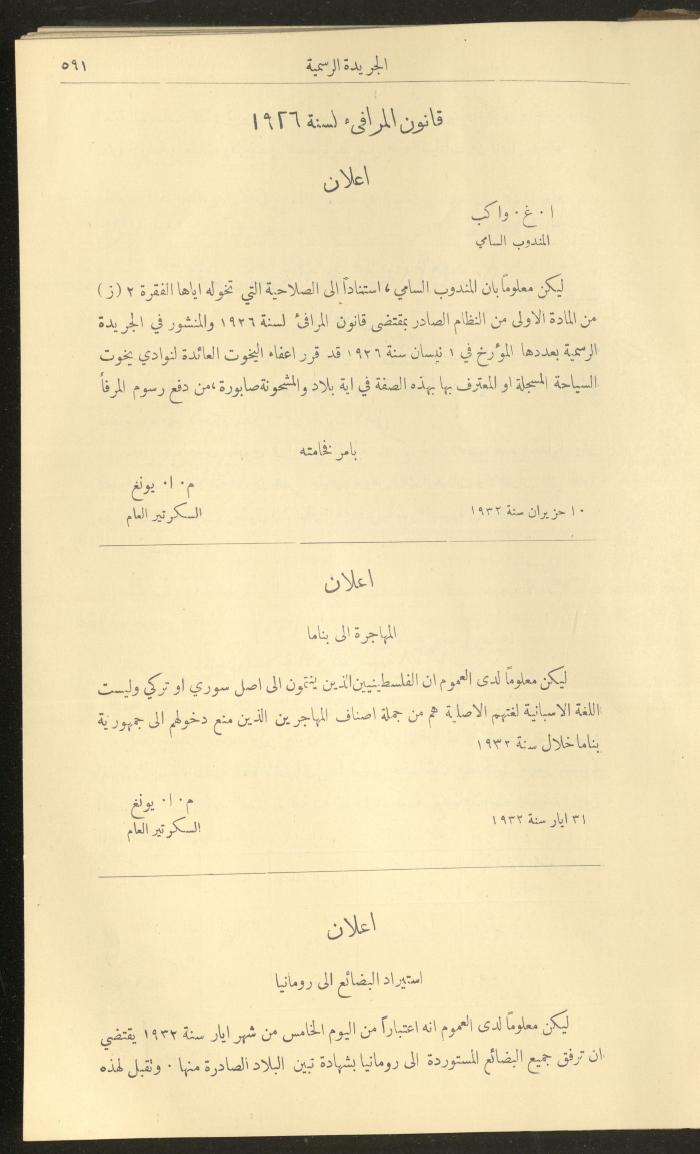 الجريدة الرسمية
٥٩١
قانون المرافىء لسنة ١٩٢٦
اعلان
ا٠ غ٠ واكب
المندوب السامي
ليكن معلوماً بان المندوب السامي ، استناداً الى الصلاحية التي تخوله اياها الفقرة ٢ (ز)
من المادة الاولى من النظام الصادر بمقتضى قانون المرافئ لسنة ١٩٢٦ والمنشور في الجريدة
الرسمية بعددها المؤرخ في ١ نيسان سنة ١٩٢٦ قد قرر اعفاء اليخوت العائدة لنوادي يخوت
السياحة المسجلة او المعترف بها بهذه الصفة في اية بلاد والمشحونة صابورة ،من دفع رسوم المرفأ
بامر فخامته
م٠ ا٠ يونغ
السكرتير العام
١٠ حزيران سنة ١٩٣٢
اعلان
المهاجرة الى بناما
ليكن معلوماً لدى العموم ان الفلسطينيين الذين ينتمون الى اصل سوري او تركي وليست
اللغة الاسبانية لغتهم الاصلية هم من جملة اصناف المهاجرين الذين منع دخولهم الى جمهورية
بناما خلال سنة ١٩٣٢
م٠ ا٠ يونغ
السكرتير العام
٣١ ايار سنة ١٩٣٢
اعلان
استيراد البضائع الى رومانيا
ليكن معلوماً لدى العموم انه اعتباراً من اليوم الخامس من شهر ايار سنة ١٩٣٢ يقتضي
ان ترفق جميع البضائع المستوردة الى رومانيا بشهادة تبين البلاد الصادرة منها ٠ وتقبل لهذه